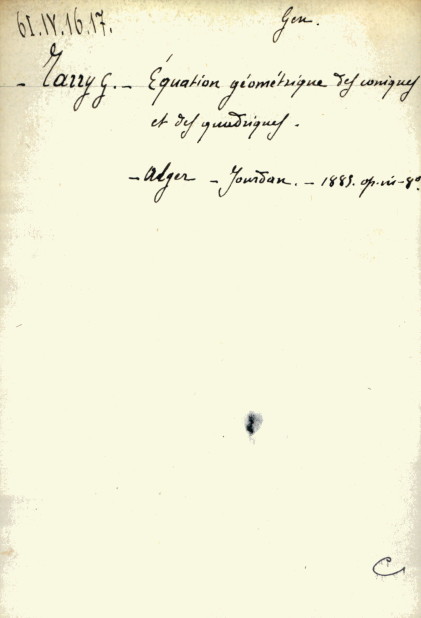 61.IV.16.17.
Gen.
- Tarry G. - Équation géométrique des coniques
et des quadriques -
- Alger - Jourdan. - 1883. op. in-8°
C